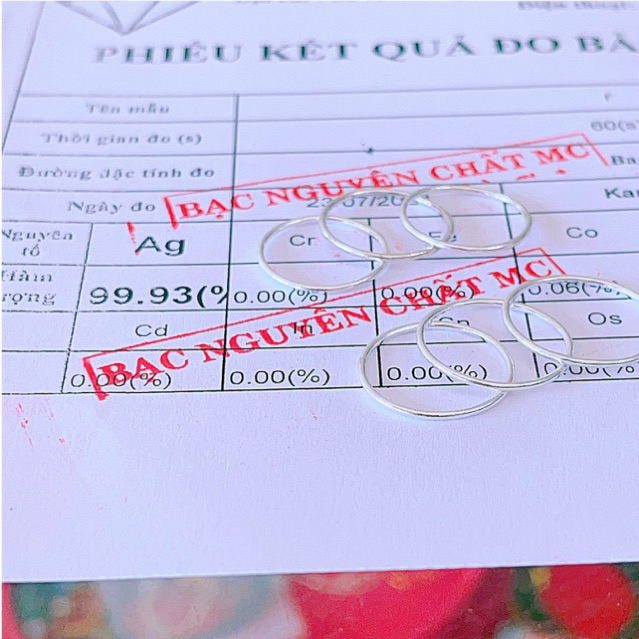 PHIẾU KẾT QUẢ ĐO BẰ
Tên mẫu
Thời gian đo (s) 60(s
Đường đặc tính đo Ba
Ngày đo 23/07/20 Ka
BẠC NGUYÊN CHẤT MC
Nguyên tố Ag Cr Fe Co
Hàm lượng 99.93(% 0.00(%) 0.00(%) 0.06(%)
BẠC NGUYÊN CHẤT MC
Cd In Sn Os
0.00(%) 0.00(%) 0.00(%) 0.00(%)